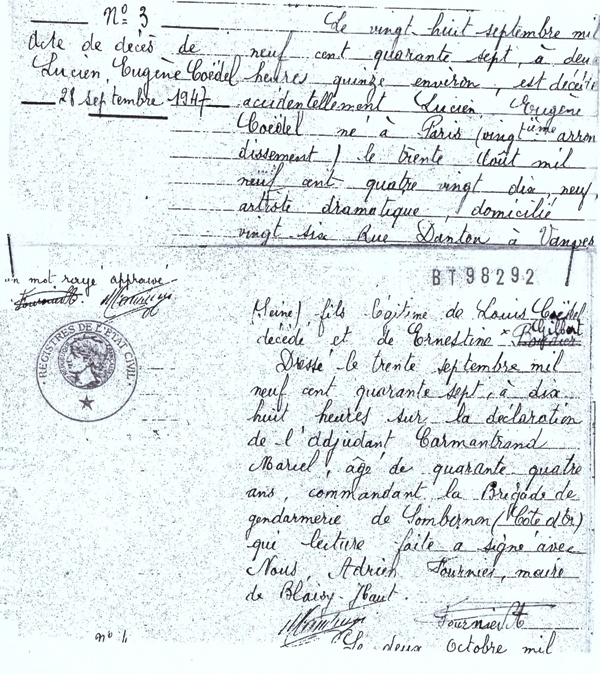 N° 3
Acte de décès de
Lucien, Eugène Coëdel
28 septembre 1947
Le vingt huit septembre mil
neuf cent quarante sept, à deux
heures quinze environ, est décédé
accidentellement Lucien, Eugène
Coëdel né à Paris (vingtième arron
dissement) le trente Août mil
neuf cent quatre vingt dix neuf,
artiste dramatique, domicilié
vingt six Rue Danton à Vanves
un mot rayé approuvé
REGISTRES DE L'ETAT CIVIL
BT98292
(Seine) fils légitime de Louis Coëdel
décédé et de Ernestine × Gilbert
Dressé le trente septembre mil
neuf cent quarante sept, à dix
huit heures sur la déclaration
de l'adjudant Carmantrand
Marcel, âgé de quarante quatre
ans, commandant la Brigade de
gendarmerie de Sombernon (Côte d'Or)
qui lecture faite a signé avec
Nous Adrien Fournier, maire
de Blaisy-Haut.
Fournier A
n° 4
Le deux Octobre mil